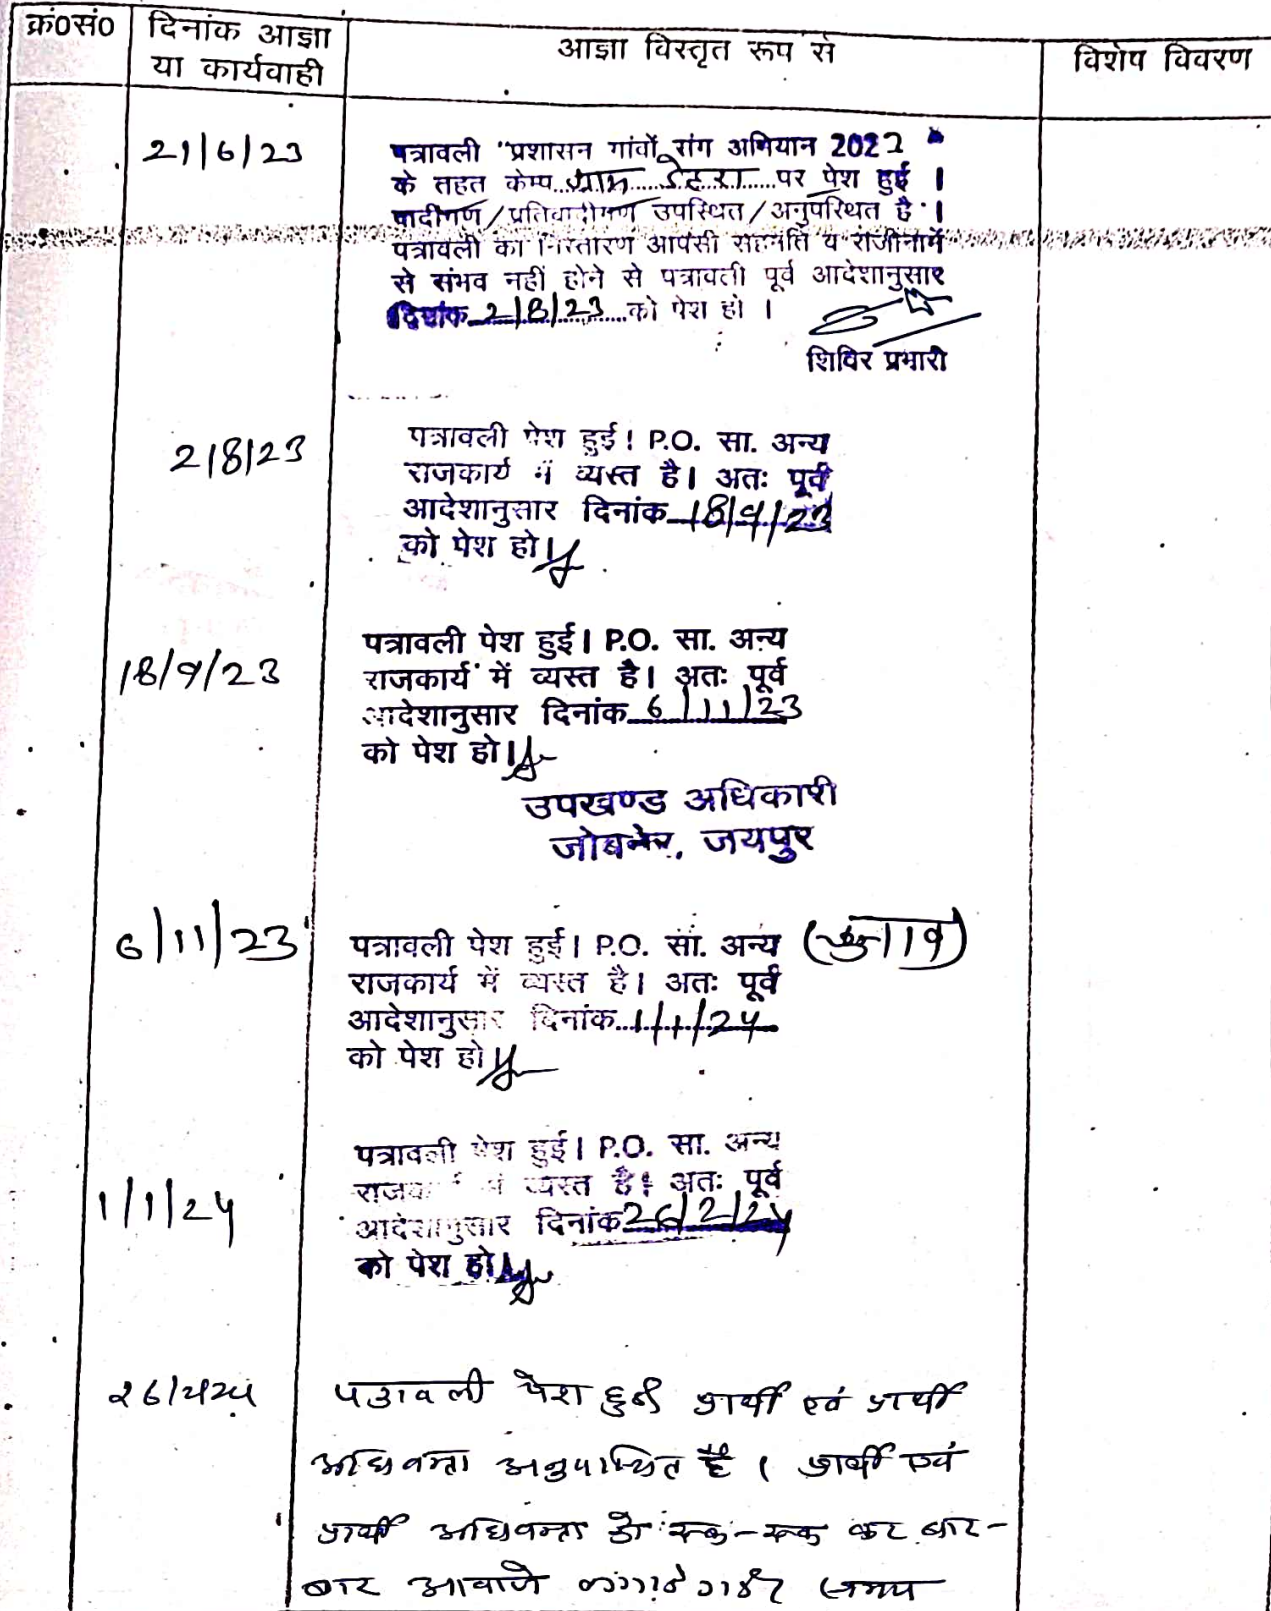 क्रं०सं० दिनांक आज्ञा या कार्यवाही आज्ञा विस्तृत रूप से विशेष विवरण
21/6/23
पत्रावली "प्रशासन गांवों संग अभियान 2022"
के तहत केम्प ग्राम पर पेश हुई ।
वादीगण/प्रतिवादीगण उपस्थित/अनुपस्थित है ।
पत्रावली का निस्तारण आपसी सहमति व राजीनामें
से संभव नहीं होने से पत्रावली पूर्व आदेशानुसार
दिनांक 2/8/23 को पेश हो ।
शिविर प्रभारी
2/8/23
पत्रावली पेश हुई। P.O. सा. अन्य
राजकार्य में व्यस्त है। अतः पूर्व
आदेशानुसार दिनांक 18/9/23
को पेश हो।
18/9/23
पत्रावली पेश हुई। P.O. सा. अन्य
राजकार्य में व्यस्त है। अतः पूर्व
आदेशानुसार दिनांक 6/11/23
को पेश हो।
उपखण्ड अधिकारी
जोबनेर, जयपुर
6/11/23
पत्रावली पेश हुई। P.O. सा. अन्य
राजकार्य में व्यस्त है। अतः पूर्व
आदेशानुसार दिनांक 1/1/24
को पेश हो।
1/1/24
पत्रावली पेश हुई। P.O. सा. अन्य
राजकार्य में व्यस्त है। अतः पूर्व
आदेशानुसार दिनांक 26/2/24
को पेश हो।
26/2/24
पत्रावली पेश हुई प्रार्थी एवं प्रार्थी
अधिवक्ता अनुपस्थित है । प्रार्थी एवं
प्रार्थी अधिवक्ता को रूक-रूक कर बार-
बार आवाजे लगाई गई समय